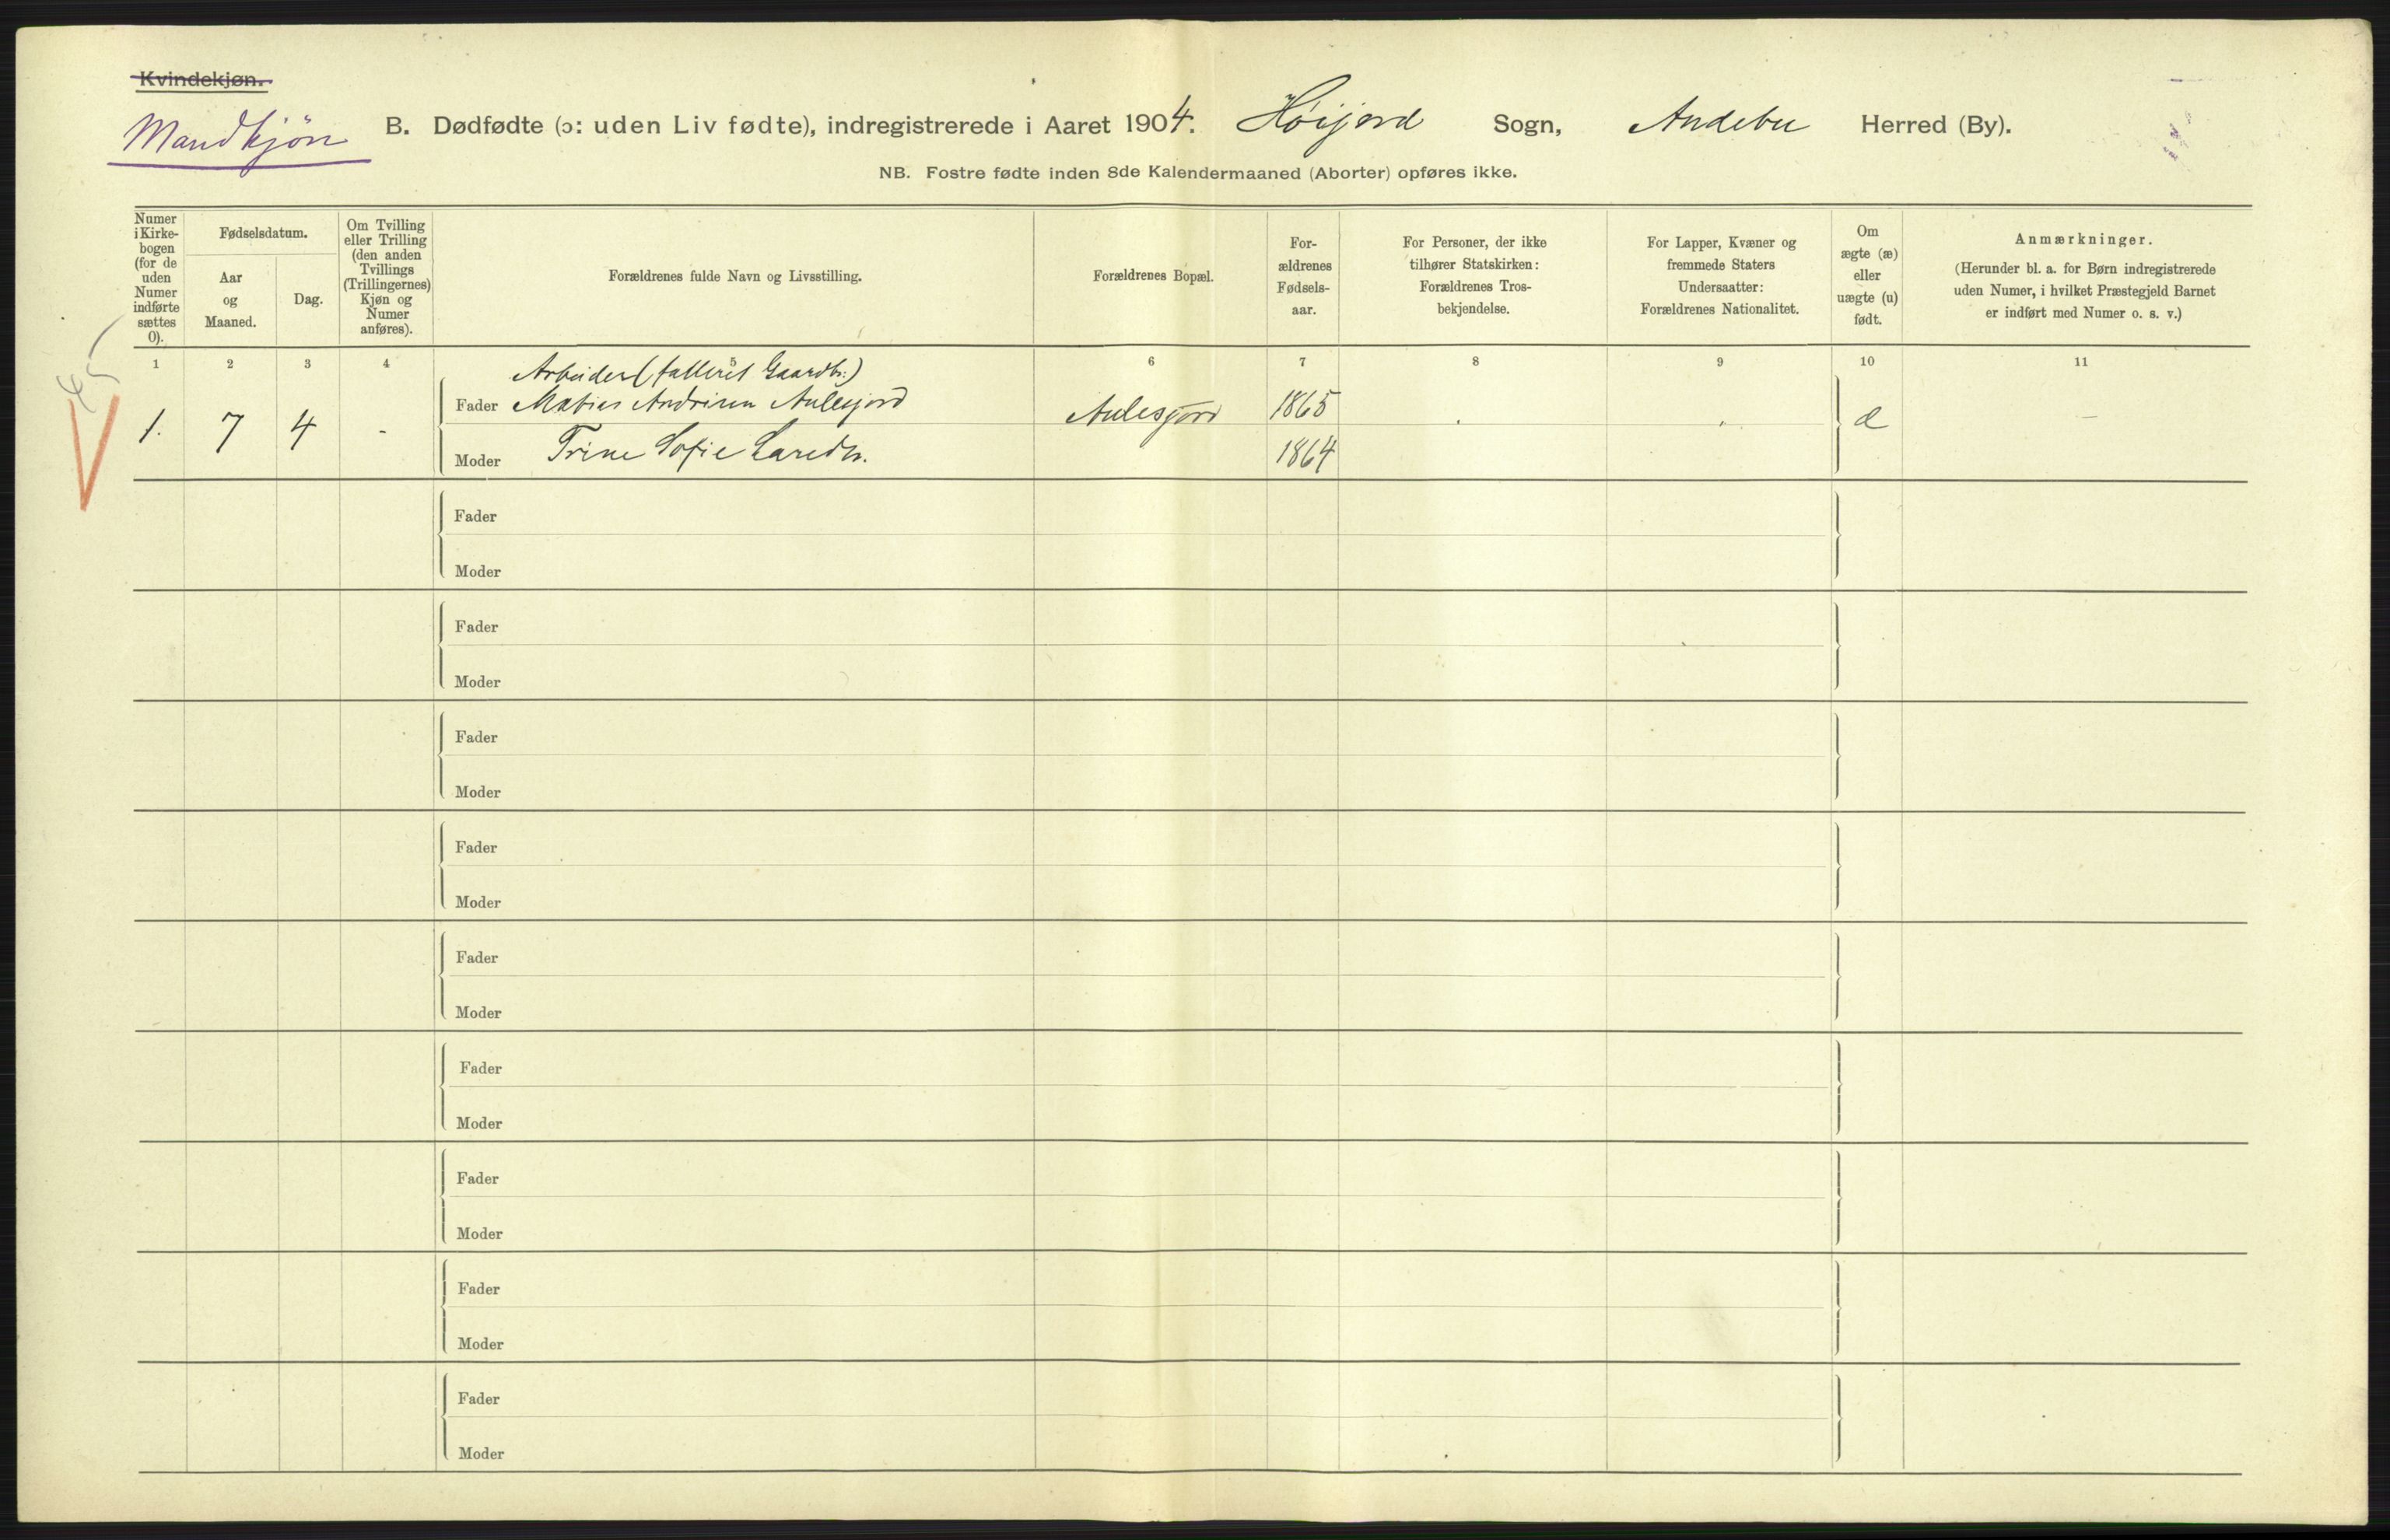 Kvindekjøn.
Mandkjön
B. Dødfødte (ɔ: uden Liv fødte), indregistrerede i Aaret 1904. Höijord Sogn, Andebu Herred (By).
NB. Fostre fødte inden 8de Kalendermaaned (Aborter) opføres ikke.
Numer i Kirke-bogen (for de uden Numer indførte sættes 0).
Fødselsdatum.
Aar og Maaned.
Dag.
Om Tvilling eller Trilling (den anden Tvillings (Trillingernes) Kjøn og Numer anføres).
Forældrenes fulde Navn og Livsstilling.
Forældrenes Bopæl.
For-ældrenes Fødsels-aar.
For Personer, der ikke tilhører Statskirken: Forældrenes Tros-bekjendelse.
For Lapper, Kvæner og fremmede Staters Undersaatter: Forældrenes Nationalitet.
Om ægte (æ) eller uægte (u) født.
Anmærkninger.
(Herunder bl. a. for Børn indregistrerede uden Numer, i hvilket Præstegjeld Barnet er indført med Numer o. s. v.)
1 2 3 4 5 6 7 8 9 10 11
Arbeider (falleret Gaardbr:)
1. 7 4 - Fader Matias Andrisen Aulesjord Aulesjord 1865 æ —
Moder Trine Sofie Larsdtr. 1864
Fader
Moder
Fader
Moder
Fader
Moder
Fader
Moder
Fader
Moder
Fader
Moder
Fader
Moder
Fader
Moder
Fader
Moder